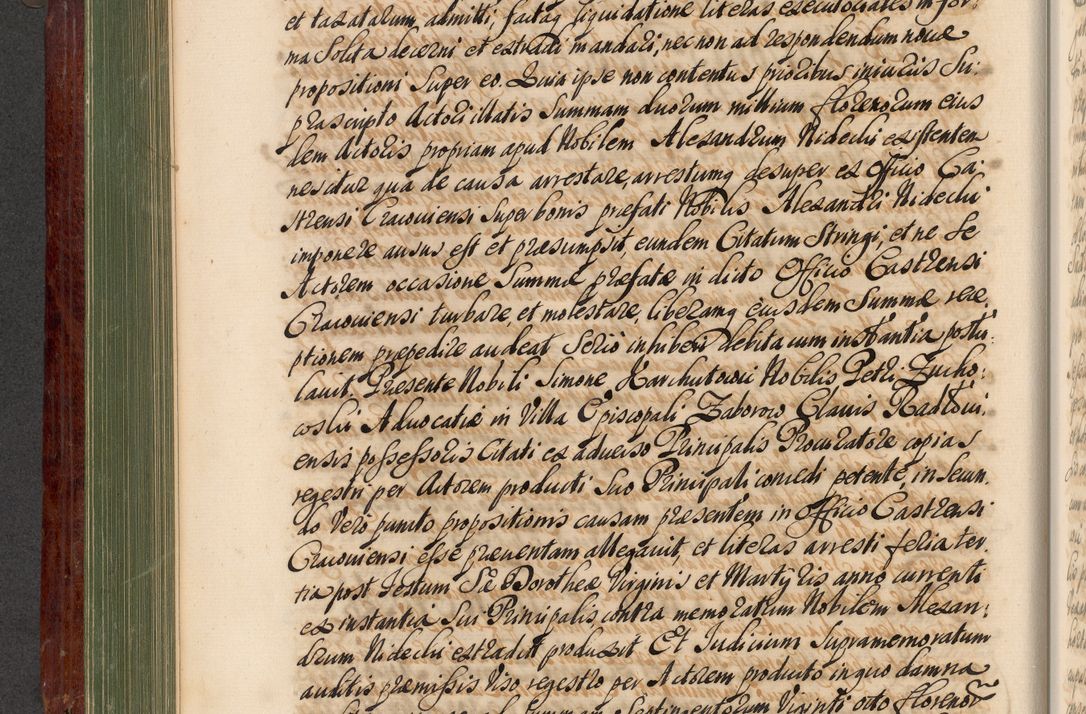 et taxatarum, admitti, factaq liquidatione literas executoriales in for:
ma Solita decerni et extradi mandari, nec non ad respondendum novæ
propositioni Super eo. Quia ipse non contentus prioribus iniuriis Su:
prascripto Actori illatis Summam duorum millium florenorum eius
dem Actoris propriam apud Nobilem Alexandrum Nidecki existenten
nescitur qua de causa arrestare, arrestumq desuper ex Officio Ca:
strensi Cracouiensi Super bonis præfati Nobilis Alexandri Nidecki
imponere ausus est et præsumpsit, eundem Citatum Stringi, et ne Se
Actorem occasione Summæ præfatæ in dicto Officio Castrensi
Cracouiensi turbare, et molestare, liberamq eiusdem Summæ rece,
ptionem præpedire audeat Serio inhiberi debita cum instantia postu:
lauit. Præsente Nobili Simone Karchutowi Nobilis Petri Zucho:
coski Aduocatiæ in Villa Episcopali Zaborow Clauis Radłoui,
ensis possessoris Citati ex aduerso Principalis Procuratore copias
regestri per Actorem producti Suo Principali concedi petente, in Secun,
do Vero puncto propositionis causam præsentem in Officio Castrensi
Cracouiensi esse præuentam allegauit, et literas arresti feria ter,
tia post Festum Sæ Dorotheæ Virginis et Martyris anno currenti
ex instantia Sui Principalis contra memoratum Nobilem Alexan:
drum Nidecki extradit produxit Et Iudicium Supramemoratum
auditis præmissis Viso regestro per Actorem producto in quo damna
Summam Septingentorum Viginti octo florenor